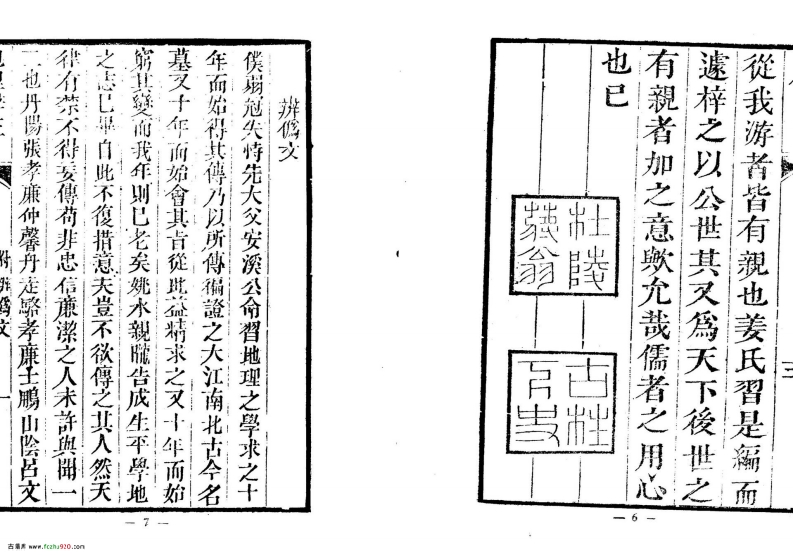 從我游者皆有親也姜氏習是編而
遽梓之以公世其又為天下後世之
有親者加之意歟允哉儒者之用心
也已
杜陵
蔣翁
古柱
下史
— 6 —
辨偽文
僕弱冠失恃先大父安溪公命習地理之學求之十
年而始得其傳乃以所傳徧證之大江南北古今名
墓又十年而始會其旨從此益精求之又十年而始
窮其變而我年則已老矣姚水親隴告成生平學地
之志已畢自此不復措意夫豈不欲傳之其人然天
律有禁不得妄傳苟非忠信廉潔之人未許與聞一
二也丹陽張孝廉仲馨丹徒駱孝廉士鵬山陰呂文
附辨偽文 一
— 7 —
古籍库 www.fczhu920.com